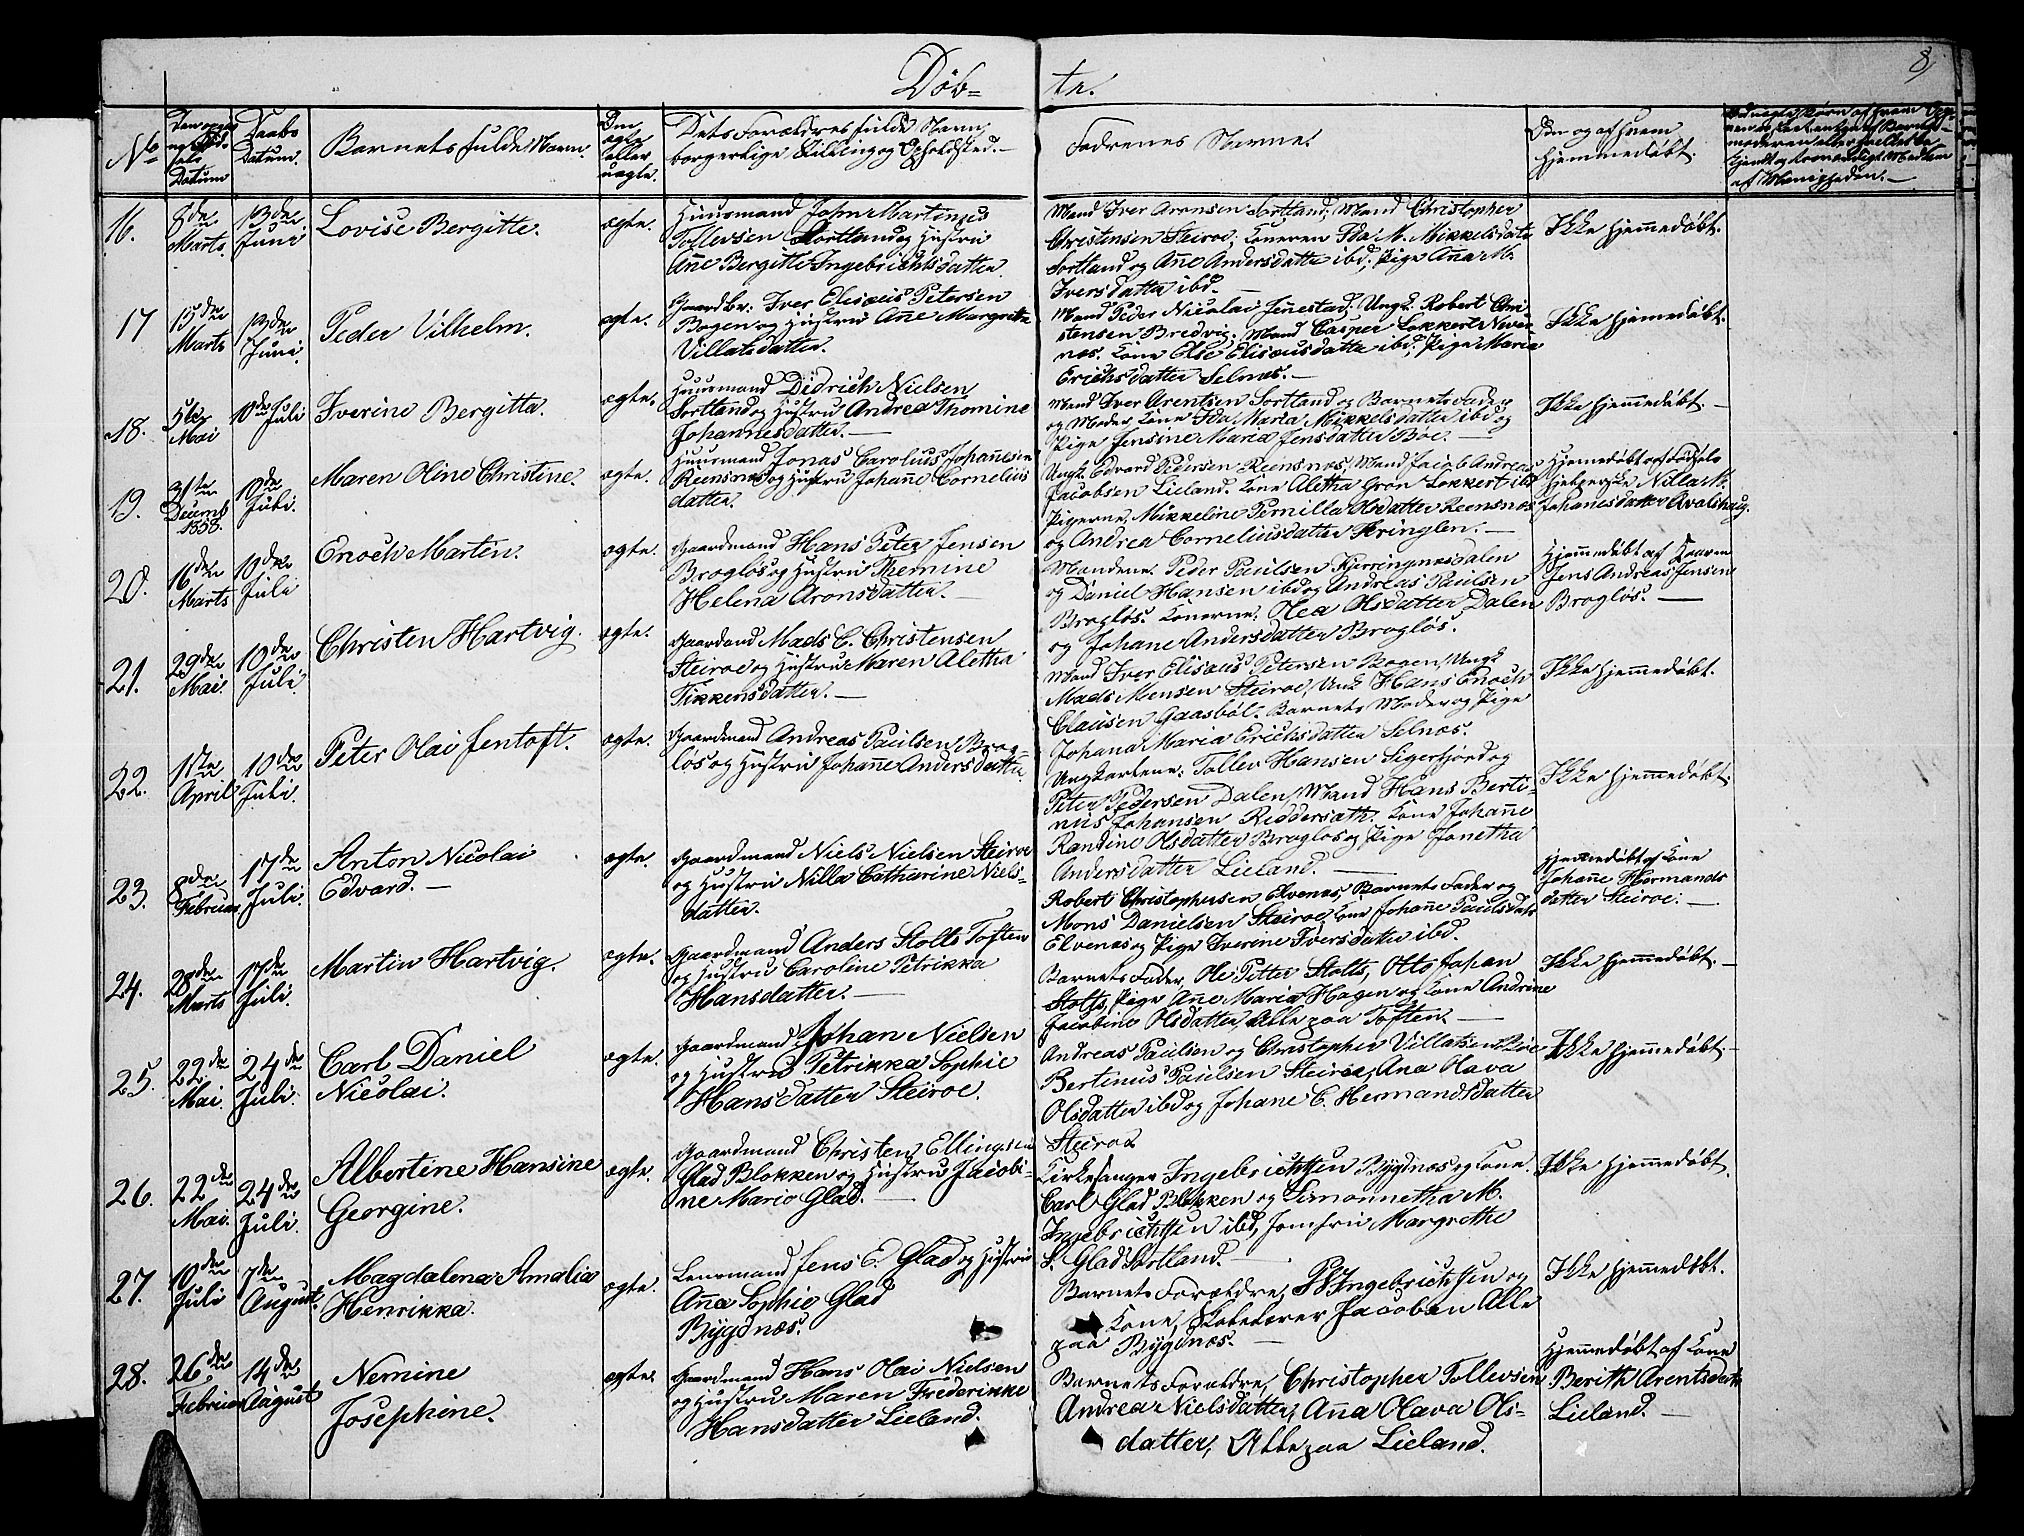 Döb=
te.
8
No
Daabs
Datum.
Barnets fulde Navn.
Om
ægte
eller
uægte.
Dets Forældres fulde Navn,
borgerlige Stilling og Opholdsted.
Fadrenes Navne.
Om og af hvem
hjemmedøbt.
16.
8de
Marts.
13de
Juni
Lovise Bergitte.
ægte.
Huusmand John Martinus
Tollevsen Sortland og Hustru
Ane Bergitte Ingebrichtsdatter.
Mand Iver Aronsen Sortland; Mand Christopher
Christensen Steiroe, Konerne Ida M. Mikkelsdatr
Sortland og Ane Andersdatter ibd; Pige Ana M.
Iversdatter ibd.
Ikke hjemmedøbt.
17
15de
Marts
13de
Juni.
Peder Vilhelm.
ægte.
Gaardbr: Iver Elisæus Petersen
Bogen og Hustru Ane Margrete
Villatsdatter.
Mand Peder Nicolai Jinestad. Ungk. Robert Chri-
stensen Bredvig; Mand Casper Lokkert
næs. Kone Else Elisæusdatter ibd; Pige Maria
Erichsdatter Selnæs.
Ikke hjemmedøbt.
18.
5te
Mai
10de Juli
Iverine Bergitta.
ægte.
Huusmand Didrich Nielsen
Sortland og Hustru Andrea Thomine
Johannesdatter.
Mand Iver Arentsen Sortland og Barnets Fader
og Moder, Kone Ida Maria Mikkelsdatter ibd og
Pige Jensine Maria Jensdatter Boe.
Ikke hjemmedøbt.
19.
31te
Decemb
1858.
10de
Juli.
Maren Oline Christine.
ægte.
Huusmand Jonas Carolius Johanesen
Reensnæs og Hustru Johane Cornelius
datter.
Ungk. Edvard Pedersen Reensnæs, Mand Jacob Andreas
Jacobsen Lieland. Kone Aletha Gron Lokkert ibd
Pigerne, Mikkeline Pernilla Olsdatter Reensnæs
og Andrea Corneliusdatter Kringlen.
Hjemmedøbt af Fødsels
hjelperske Nilla M.
Johanesdatter
20.
16de
Marts
10de
Juli
Enoch Martin.
ægte.
Gaardmand Hans Peter Jensen
Brogløs og Hustru Themine
Helena Aronsdatter.
Mandene. Peder Paulsen Kjerringnæsdalen
og Daniel Hansen ibd og Andreas Paulsen
Brogløs. Konerne: Olea Olsdatter Dalen
og Johane Andersdatter Brogløs.
Hjemmedøbt af
Jens Andreas Jensen
Brogløs.
21.
29de
Mai.
10de
Juli.
Christen Hartvig.
ægte.
Gaardmd Mads C. Christensen
Steiroe og Hustru Maren Aletha
Tikkensdatter.
Mand Iver Elisæus Petersen Bogen, Ungk
Mads Monsen Steiroe, Unk Hans Enoch
Clausen Gaasböl. Barnets Moder og Pige
Johana Maria Erichsdatter Selnæs.
Ikke hjemmedøbt.
22.
11te
April
10de
Juli.
Peter Olai Jentoft.
ægte.
Gaardmand Andreas Paulsen Brog-
løs og Hustru Johane Andersdatter
Ungkarlene: Tollev Hansen Sigerfjord og
Peter Pedersen Dalen, Mand Hans Berti-
nus Johansen Reddersath. Kone Johane
Randine Olsdatter Brogløs og Pige Jonetha
Andersdatter Lieland.
Ikke hjemmedøbt.
23.
8de
Februar
17de
Juli.
Anton Nicolai
Edvard.
ægte.
Gaardmand Niels Nielsen Steiroe
og Hustru Nilla Catharine Niels-
datter.
Robert Christophersen Elvenæs, Barnets Fader og
Mons Danielsen Steiroe. Kone Johane Paulsdatr
Elvenæs og Pige Iverine Iversdatter ibd.
Hjemmedøbt af Kone
Johane Hermands
datter Steiroe.
24.
28de
Marts
17de
Juli.
Martin Hartvig.
ægte.
Gaardmand Anders Stolts Toften
og Hustru Caroline Petrikka
Hansdatter.
Barnets Fader, Ole Petter Stolts, Otto Johan
Stolts, Pige Ane Maria Hagen og Kone Andrine
Jacobine Olsdatter, Alle paa Toften.
Ikke hjemmedøbt.
25.
22de
Mai.
24de
Juli.
Carl Daniel
Nicolai.
ægte.
Gaardmand Johan Nielsen
og Hustru Petrikka Sophie
Hansdatter Steiroe.
Andreas Paulsen og Christopher Villatsen
Bertinus Paulsen Steiroe, Ana Olava
Olsdatter ibd og Johane C. Hermandsdatter
Steiroe
Ikke hjemmedøbt.
26.
22de
Mai.
24de
Juli.
Albertine Hansine
Georgine.
ægte.
Gaardmand Christen Ellingsen
Glad Blokken og Hustru Jacobi-
ne Maria Glad.
Kirkesanger Ingebrichtsen Bygdnæs og Kone
Carl Glad Blokken og Simonnetha M.
Ingebrichtsen ibd, Jomfru Margrethe
S. Glad Sortland.
Ikke hjemmedøbt.
27.
10de
Juli
7de
August.
Magdalena Amalia
Henrikka.
ægte.
Lensmand Jens E. Glad og Hustru
Ana Sophie Glad
Bygdnæs.
Barnets Forældre, P Ingebrichtsen og
Kone, Skolelærer Jacobsen Alle
paa Bygdnæs.
Ikke hjemmedøbt.
28.
26de
Februar
14de
August
Nemine
Josephine.
ægte.
Gaardmand Hans Olai Nielsen
og Hustru Maren Frederikke
Hansdatter Lieland.
Barnets Forældre, Christopher Tollevsen
Andrea Nielsdatter, Ana Olava Ols-
datter, Alle paa Lieland.
Hjemmedøbt af Kone
Berith Arentsdatr
Lieland.